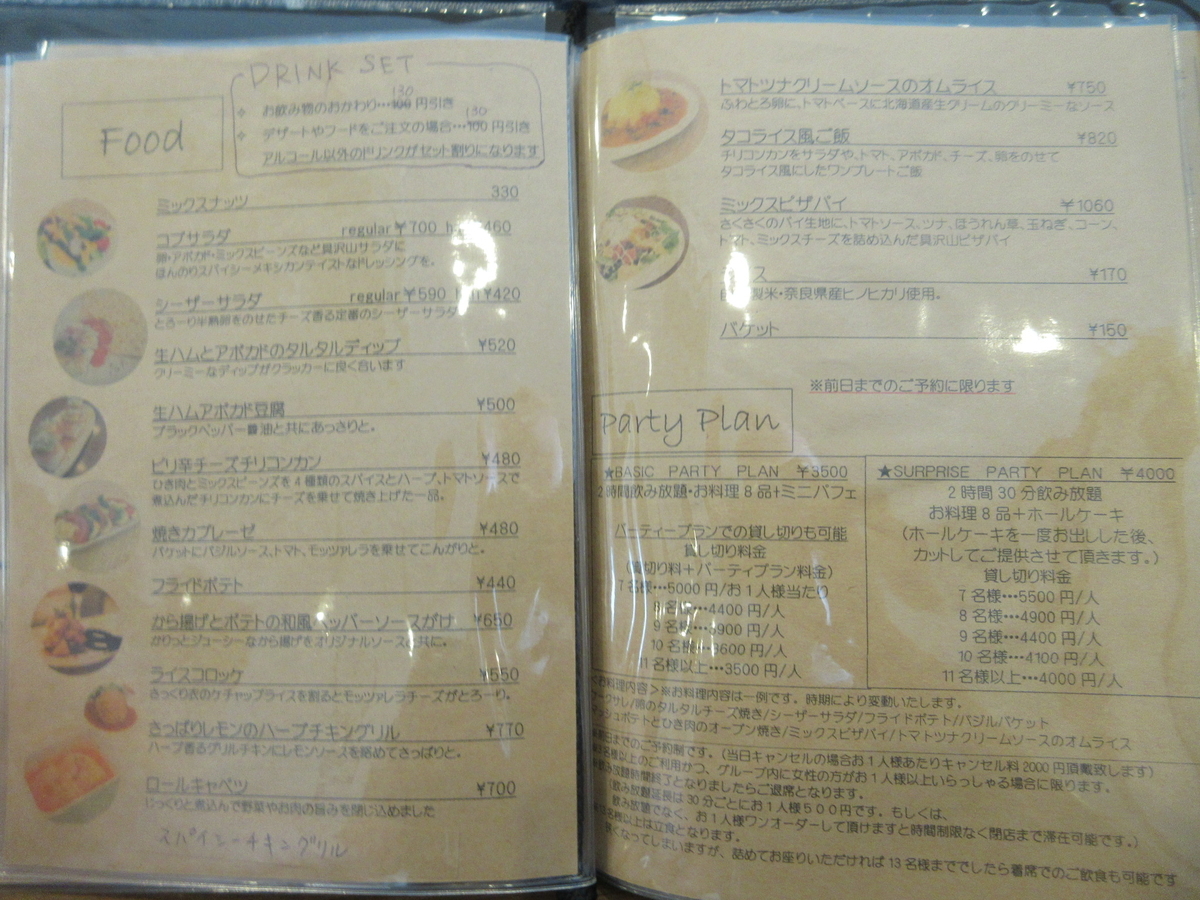 DRINK SET
Food
お飲み物のおかわり…100 130 円引き
デザートやフードをご注文の場合…100 130 円引き
アルコール以外のドリンクがセット割りになります
ミックスナッツ 330
コブサラダ regular￥700 460
卵・アボカド・ミックスビーンズなど具沢山サラダに
ほんのりスパイシーメキシカンテイストなドレッシングを。
シーザーサラダ regular￥590 ￥420
とろーり半熟卵をのせたチーズ香る定番のシーザーサラダ
生ハムとアボカドのタルタルディップ ￥520
クリーミーなディップがクラッカーに良く合います
生ハムアボカド豆腐 ￥500
ブラックペッパー醤油と共にあっさりと。
ピリ辛チーズチリコンカン ￥480
ひき肉とミックスビーンズを４種類のスパイスとハーブ、トマトソースで
煮込んだチリコンカンにチーズを乗せて焼き上げた一品。
焼きカプレーゼ ￥480
バケットにバジルソース、トマト、モッツァレラを乗せてこんがりと。
フライドポテト ￥440
から揚げとポテトの和風ペッパーソースがけ ￥650
かりっとジューシーなから揚げをオリジナルソースと共に。
ライスコロッケ ￥550
さっくり衣のケチャップライスを割るとモッツァレラチーズがとろーり。
さっぱりレモンのハーブチキングリル ￥770
ハーブ香るグリルチキンにレモンソースを絡めてさっぱりと。
ロールキャベツ ￥700
じっくりと煮込んで野菜やお肉の旨みを閉じ込めました
スパイシーチキングリル
トマトツナクリームソースのオムライス ￥750
ふわとろ卵に、トマトベースに北海道産生クリームのクリーミーなソース
タコライス風ご飯 ￥820
チリコンカンをサラダや、トマト、アボカド、チーズ、卵をのせて
タコライス風にしたワンプレートご飯
ミックスピザパイ ￥1060
さくさくのパイ生地に、トマトソース、ツナ、ほうれん草、玉ねぎ、コーン、
トマト、ミックスチーズを詰め込んだ具沢山ピザパイ
ス ￥170
製米・奈良県産ヒノヒカリ使用。
バケット ￥150
※前日までのご予約に限ります
Party Plan
★BASIC PARTY PLAN ￥3500
２時間飲み放題・お料理８品＋ミニパフェ
パーティープランでの貸し切りも可能
貸し切り料金
(貸切り料＋パーティプラン料金)
７名様…5000円/お１人様当たり
８名様…4400円/人
９名様…3900円/人
10名様…3600円/人
11名様以上…3500円/人
★SURPRISE PARTY PLAN ￥4000
２時間30分飲み放題
お料理８品＋ホールケーキ
(ホールケーキを一度お出しした後、
カットしてご提供させて頂きます。)
貸し切り料金
７名様…5500円/人
８名様…4900円/人
９名様…4400円/人
10名様…4100円/人
11名様以上…4000円/人
＜お料理内容＞※お料理内容は一例です。時期により変動いたします。
ークサレ/卵のタルタルチーズ焼き/シーザーサラダ/フライドポテト/バジルバケット
ッシュポテトとひき肉のオーブン焼き/ミックスピザパイ/トマトツナクリームソースのオムライス
前日までのご予約制です。(当日キャンセルの場合お１人様あたりキャンセル料2000円頂戴致します)
名様以上のご利用かつ、グループ内に女性の方がお１人様以上いらっしゃる場合に限ります。
飲み放題時間終了となりましたらご退席となります。
(飲み放題延長は30分ごとにお１人様５００円です。もしくは、
飲み放題でなく、お１人様ワンオーダーして頂けますと時間制限なく閉店まで滞在可能です。)
名様以上は立食となります。
くなってしまいますが、詰めてお座りいただければ13名様まででしたら着席でのご飲食も可能です